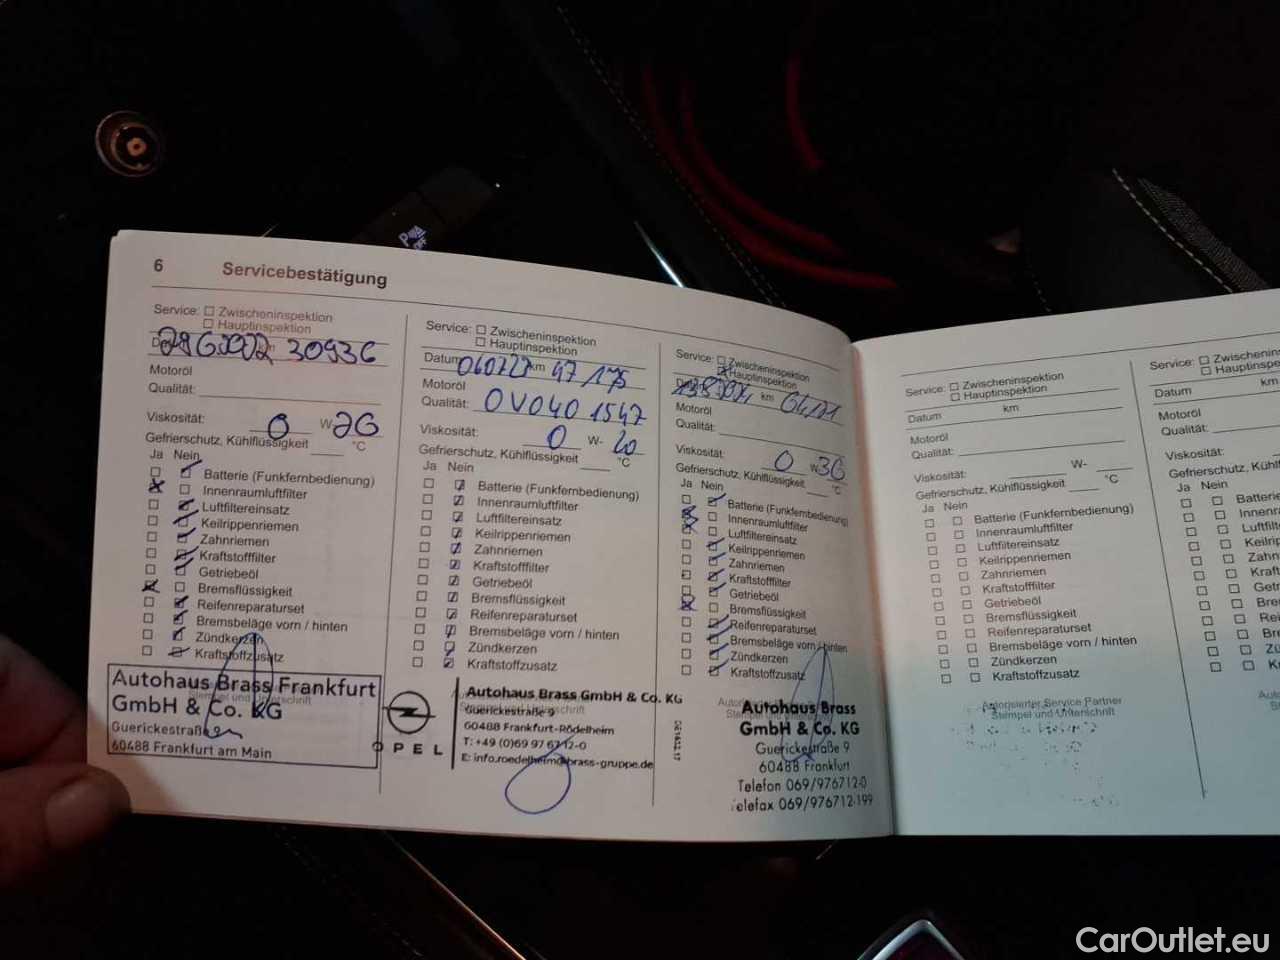 P
OFF
6 Servicebestätigung
Service: Zwischeninspektion
Hauptinspektion
30936
Motoröl
Qualität:
Viskosität: 0 W-
Gefrierschutz, Kühlflüssigkeit °C
Ja Nein
Batterie (Funkfernbedienung)
Innenraumluftfilter
Luftfiltereinsatz
Keilrippenriemen
Zahnriemen
Kraftstofffilter
Getriebeöl
Bremsflüssigkeit
Reifenreparaturset
Bremsbeläge vorn / hinten
Zündkerzen
Kraftstoffzusatz
Stempel und Unterschrift
Autohaus Brass Frankfurt
GmbH & Co. KG
Guerickestraße
60488 Frankfurt am Main
Service: Zwischeninspektion
Hauptinspektion
Datum 060722 km 47175
Motoröl
Qualität: OV0401547
Viskosität: 0 W- 20
Gefrierschutz, Kühlflüssigkeit °C
Ja Nein
Batterie (Funkfernbedienung)
Innenraumluftfilter
Luftfiltereinsatz
Keilrippenriemen
Zahnriemen
Kraftstofffilter
Getriebeöl
Bremsflüssigkeit
Reifenreparaturset
Bremsbeläge vorn / hinten
Zündkerzen
Kraftstoffzusatz
OPEL
Autohaus Brass GmbH & Co. KG
Guerickestraße 9
60488 Frankfurt-Rödelheim
T: +49 (0)69 97 67 12-0
E: info.roedelheim@brass-gruppe.de
Service: Zwischeninspektion
Hauptinspektion
km
Motoröl
Qualität:
Viskosität: 0
Gefrierschutz, Kühlflüssigkeit °C
Ja Nein
Batterie (Funkfernbedienung)
Innenraumluftfilter
Luftfiltereinsatz
Keilrippenriemen
Zahnriemen
Kraftstofffilter
Getriebeöl
Bremsflüssigkeit
Reifenreparaturset
Bremsbeläge vorn / hinten
Zündkerzen
Kraftstoffzusatz
Autohaus Brass
GmbH & Co. KG
Guerickestraße 9
60488 Frankfurt
Telefon 069/976712-0
Telefax 069/976712-199
Service: Zwischeninspektion
Hauptinspektion
Datum km
Motoröl
Qualität:
Viskosität: W-
Gefrierschutz, Kühlflüssigkeit °C
Ja Nein
Batterie (Funkfernbedienung)
Innenraumluftfilter
Luftfiltereinsatz
Keilrippenriemen
Zahnriemen
Kraftstofffilter
Getriebeöl
Bremsflüssigkeit
Reifenreparaturset
Bremsbeläge vorn / hinten
Zündkerzen
Kraftstoffzusatz
Autorisierter Service Partner
Stempel und Unterschrift
Service: Zwischenin
Hauptinspe
Datum
Motoröl
Qualität:
Viskosität:
Gefrierschutz, Kühlflüssi
Ja Nein
Batterie
Innenra
Luftfilt
Keilri
Zahn
Kraft
Getr
Bre
Rei
Br
Zü
K
CarOutlet.eu